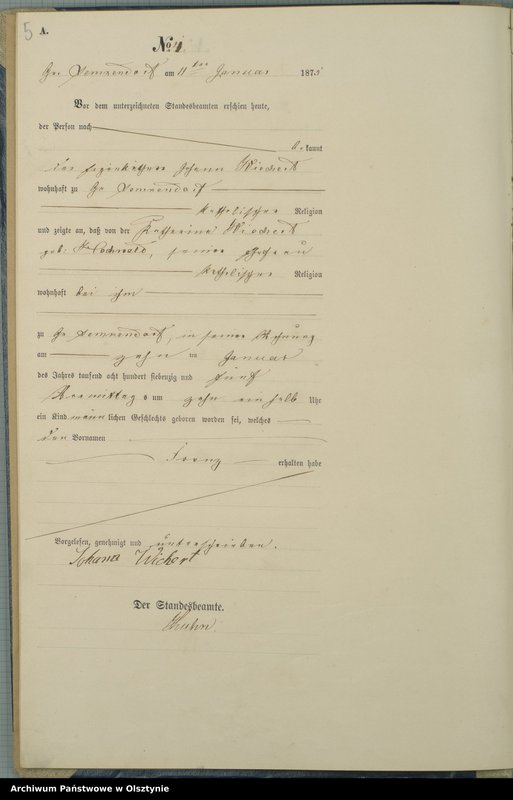 5 A.
№ 4.
Gr. am 11ten Januar 1875
Vor dem unterzeichneten Standesbeamten erschien heute,
der Person nach
be kannt
der Johann Wichert
wohnhaft zu Gr.
katholischer Religion
und zeigte an, daß von der Katharina Wichert
geb: seiner Ehefrau
katholischer Religion
wohnhaft bei ihm
zu Gr. in seiner Wohnung
am zehn ten Januar
des Jahres tausend acht hundert siebenzig und fünf
Vormittag s um zehn ein halb Uhr
ein Kind männlichen Geschlechts geboren worden sei, welches
den Vornamen
Franz erhalten habe
Vorgelesen, genehmigt und unterschrieben.
Johann Wichert
Der Standesbeamte.
Archiwum Państwowe w Olsztynie